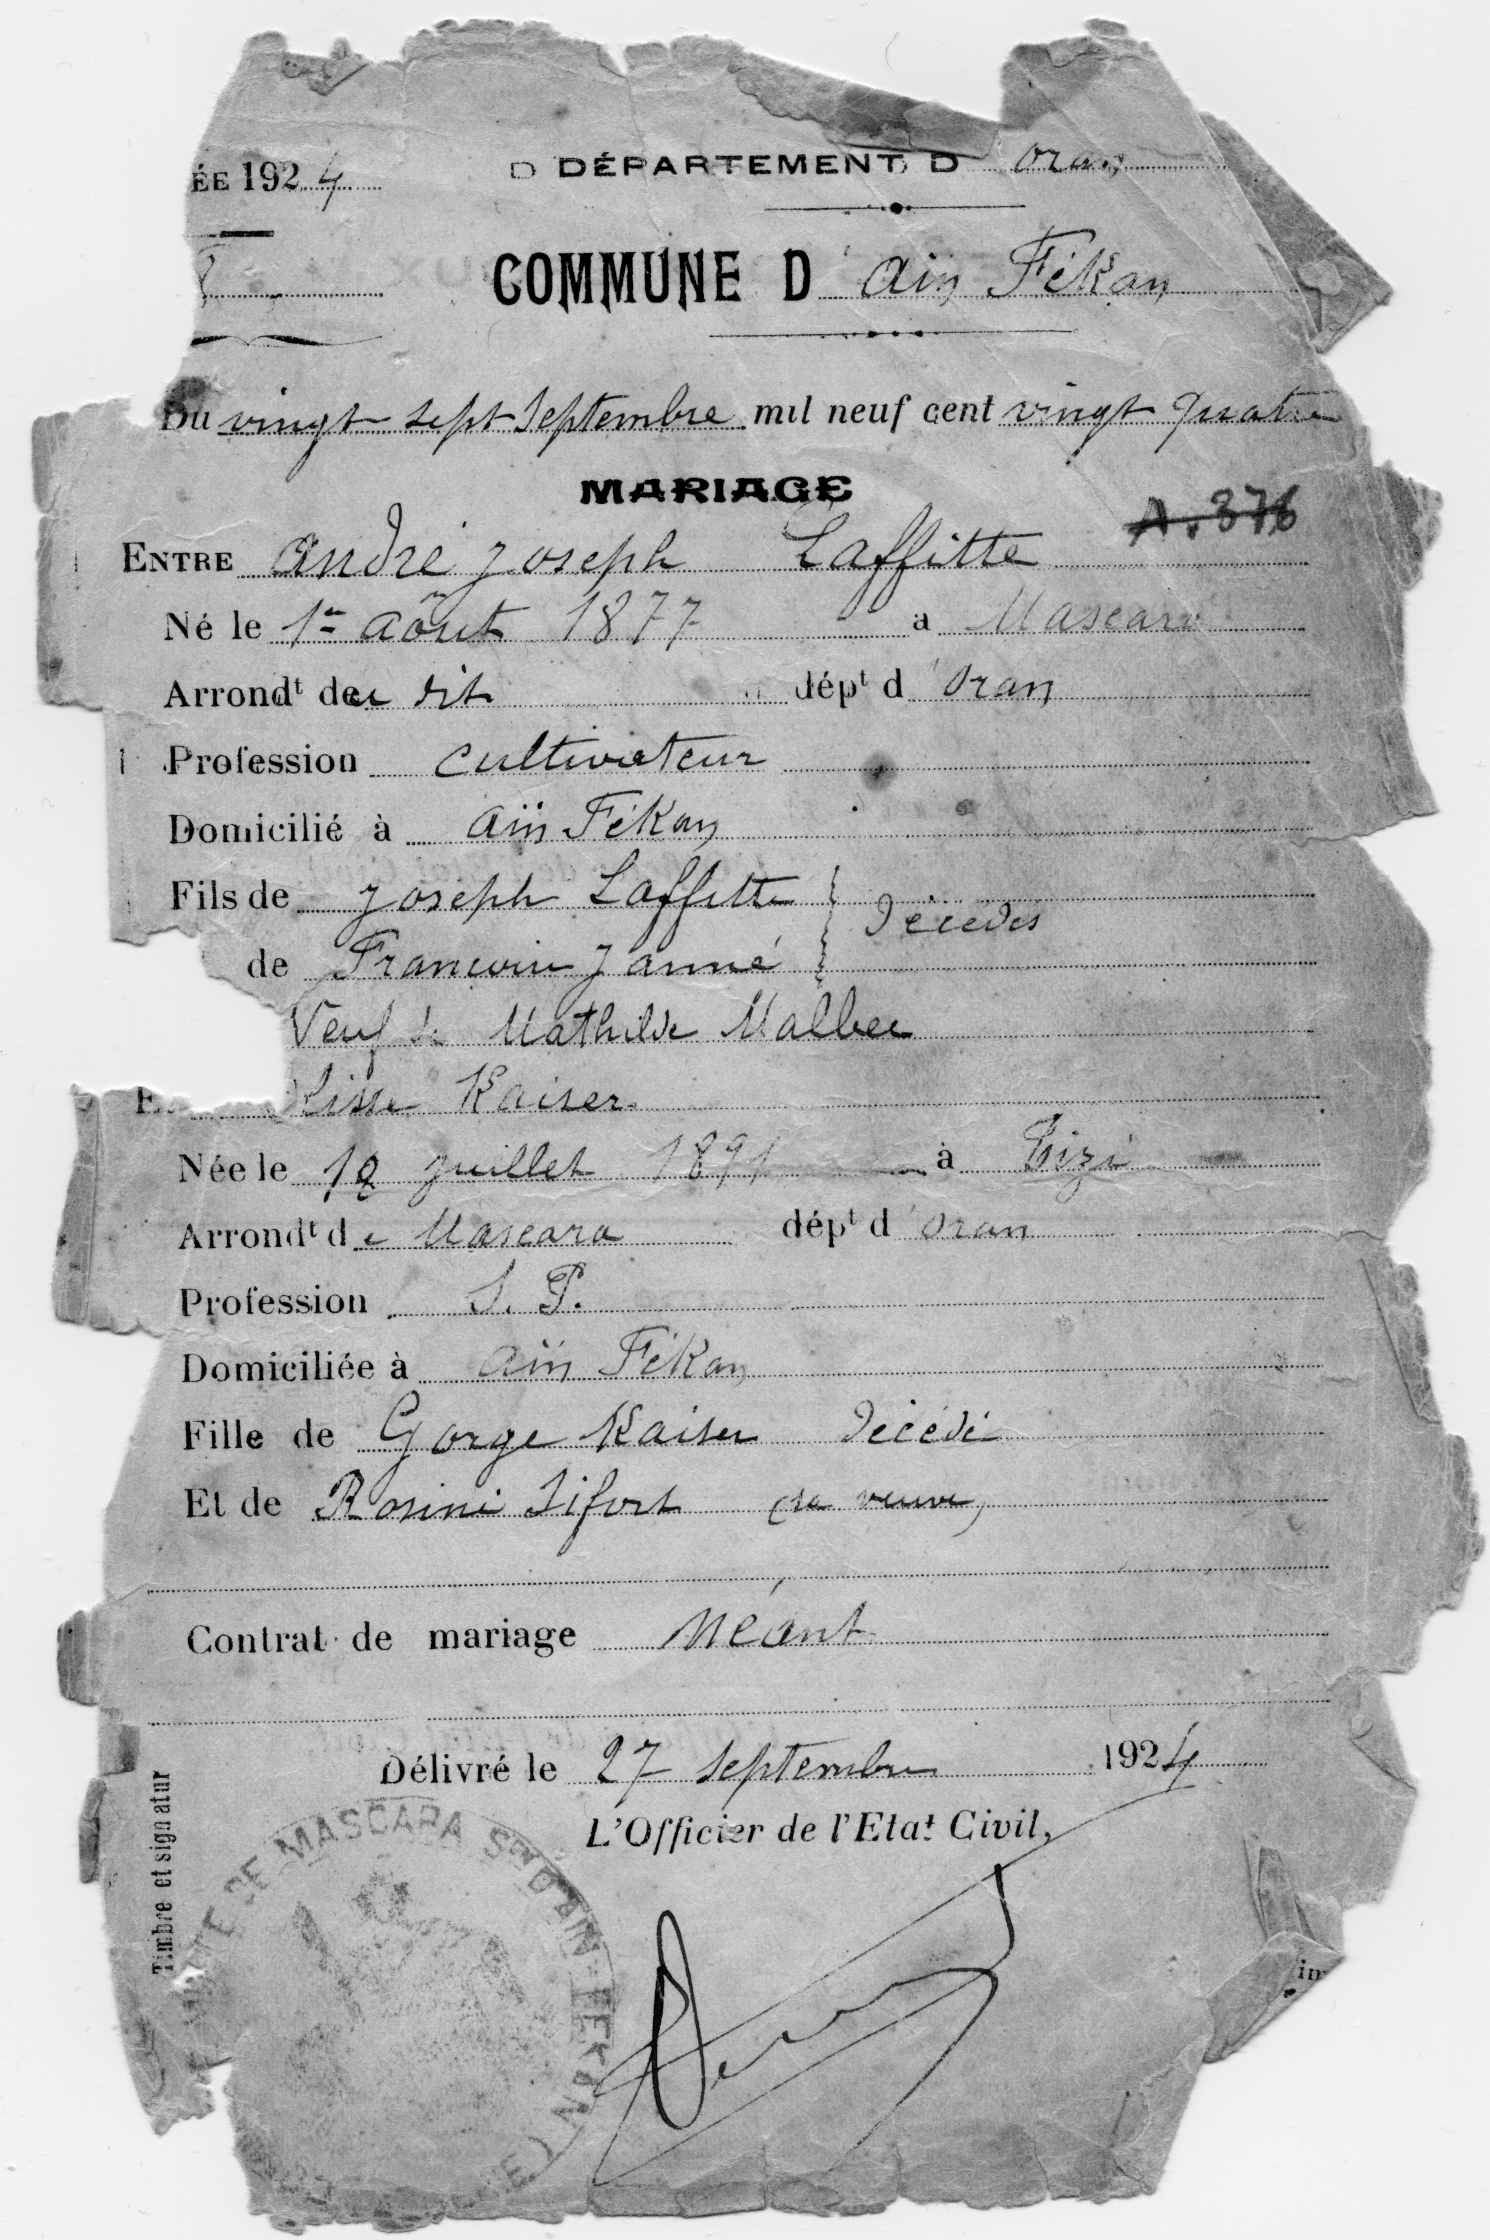 ÉE 1924
DÉPARTEMENT D Oran
COMMUNE D Ain Fékan
Du vingt sept Septembre mil neuf cent vingt quatre
MARIAGE
A. 376
ENTRE André Joseph Laffitte
Né le 1er Août 1877 a Mascara
Arrondt de dit dépt d'Oran
Profession Cultivateur
Domicilié à Aïn Fékan
Fils de Joseph Laffitte
de Jamné
décédés
Veuf de Mathilde Malbec
Kaiser
Née le juillet 1891 à Tizi
Arrondt de Mascara dépt d'Oran
Profession S. P.
Domiciliée à Aïn Fékan
Fille de Gorge Kaiser décédé
Et de Rosine Sifort (sa veuve)
Contrat de mariage Néant
Délivré le 27 Septembre 1924
L'Officier de l'Etat Civil,
Timbre et signatur
MIXTE DE MASCARA Son D'AIN-FEKAN
im